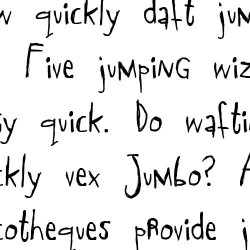 w quickly daft jum
Five jumping wiz
by quick. Do wafti
ckly vex Jumbo? A
cotheques provide j